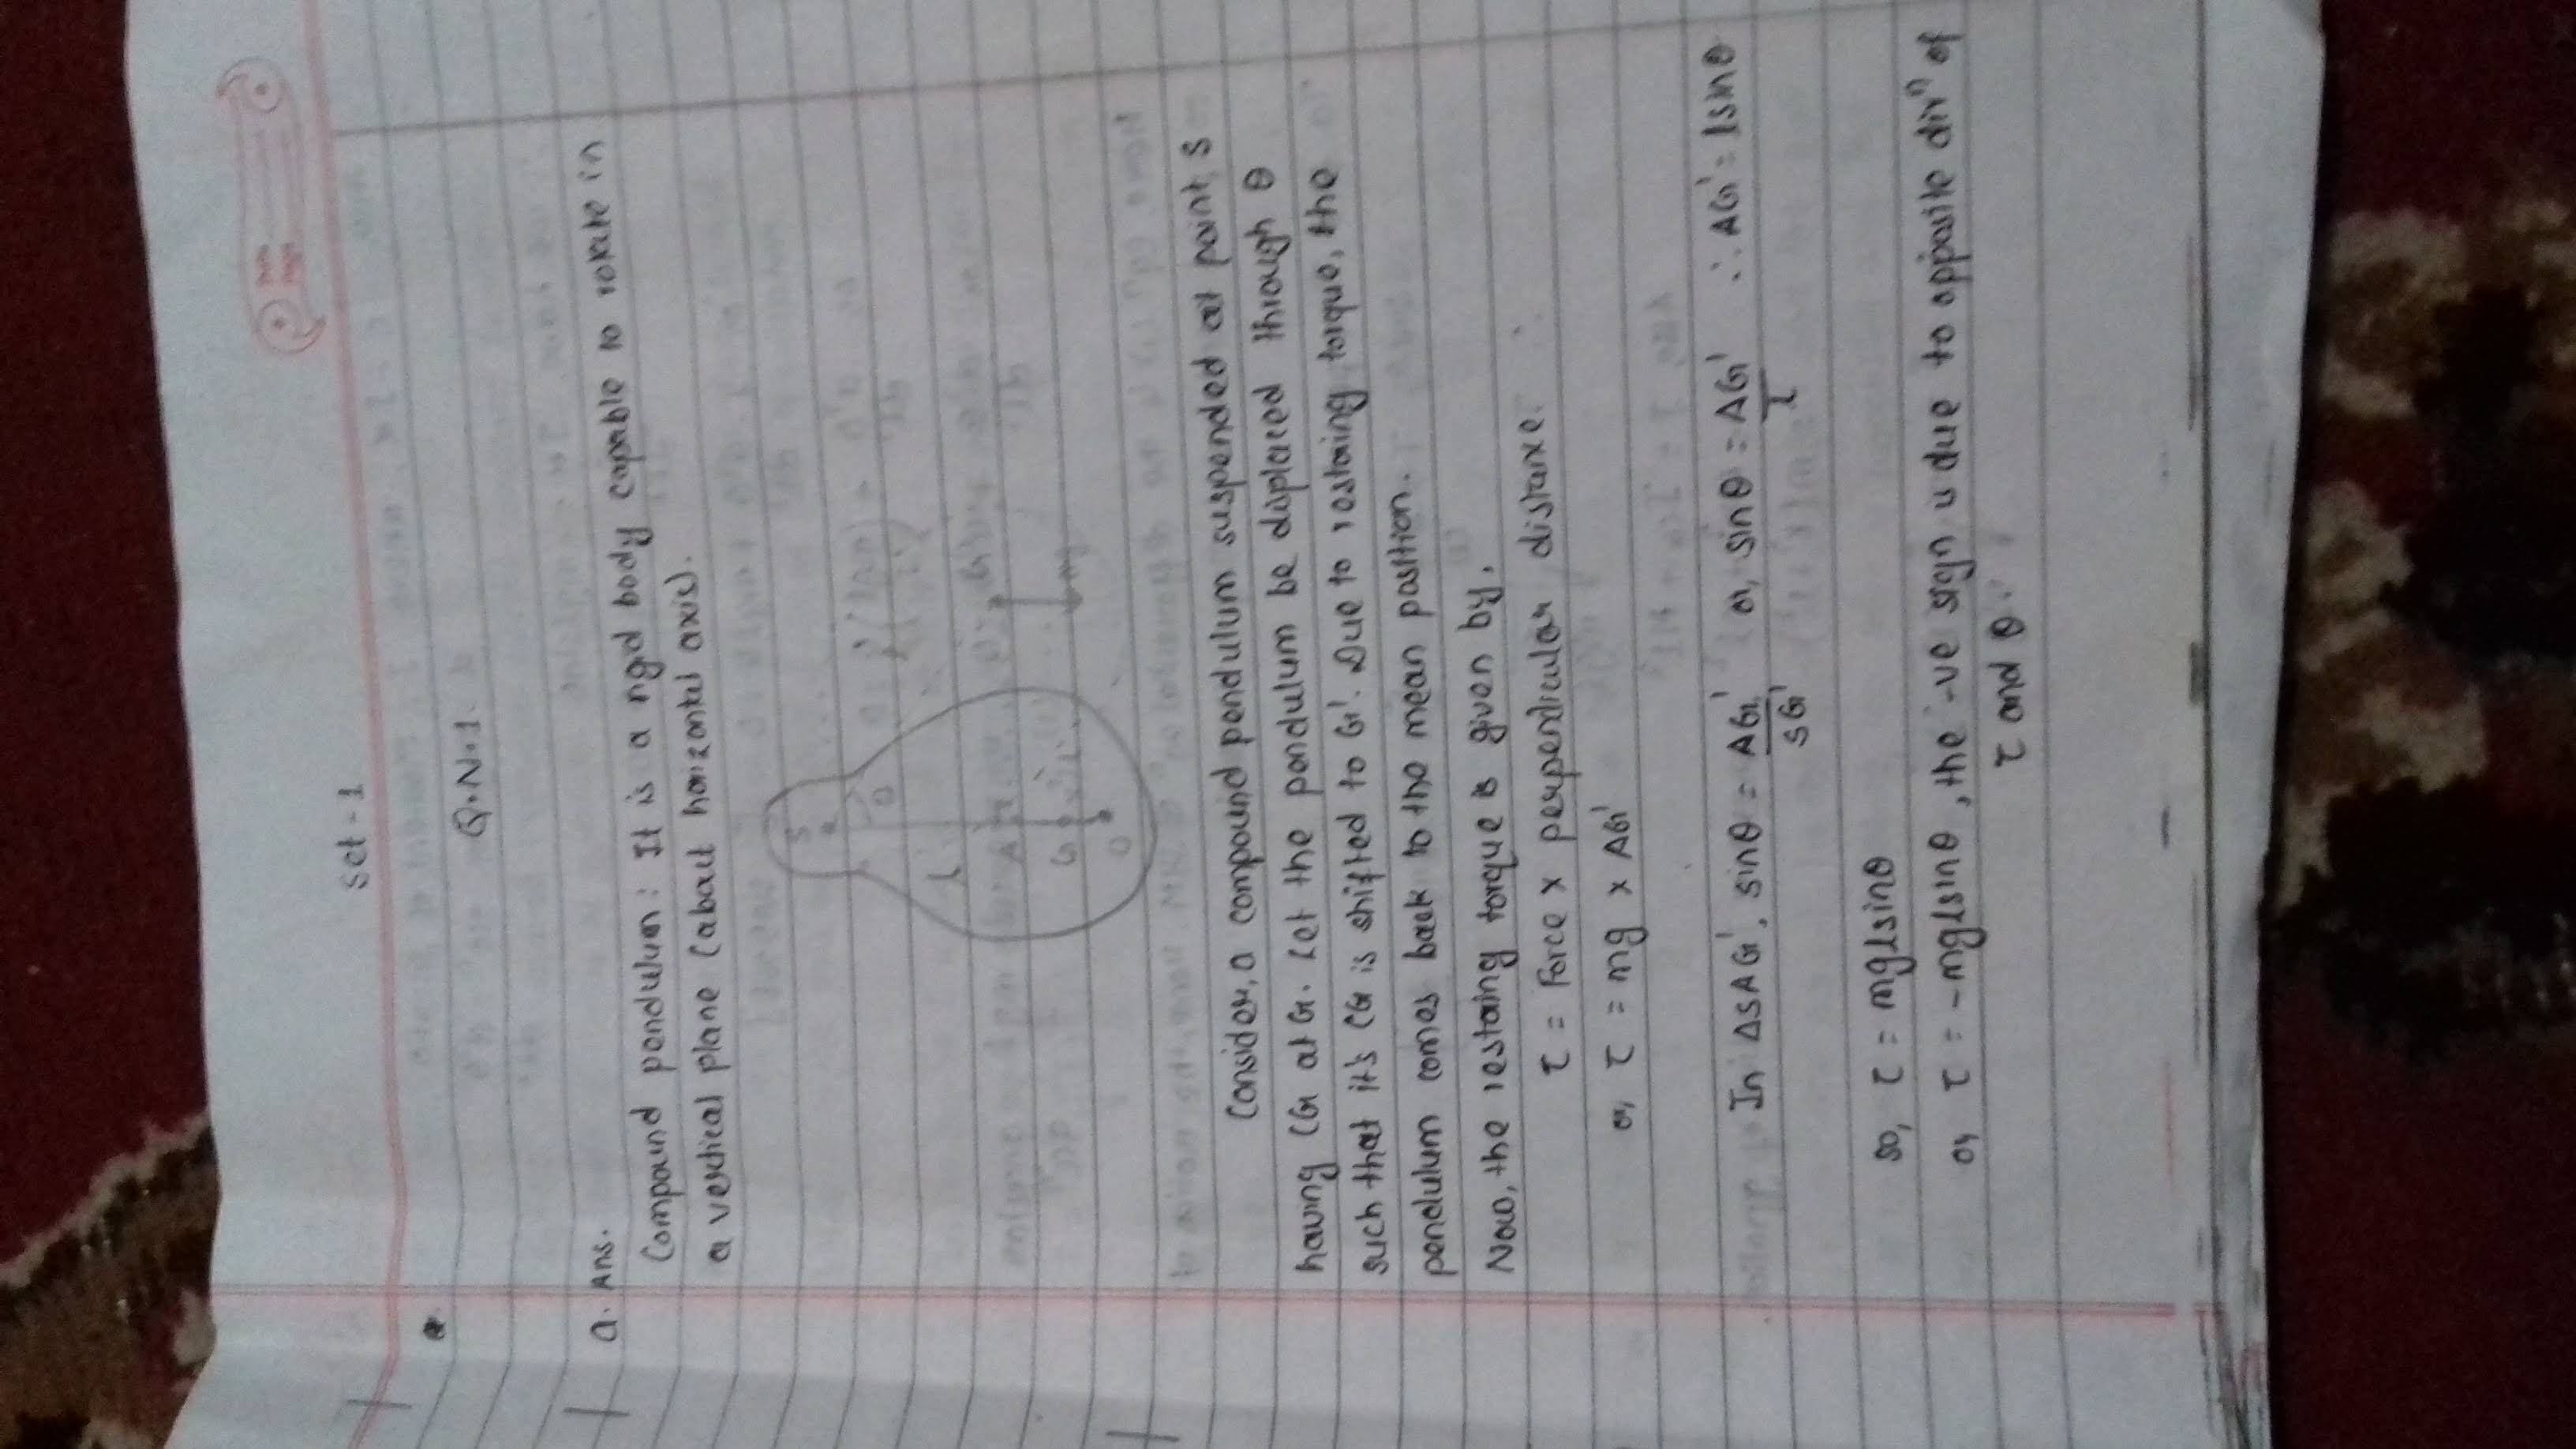 Date
Page
Set - 1
Q.N.1.
a. Ans.
Compound pendulum: It is a rigid body capable to rotate in
a vertical plane (about horizontal axis).
S
θ
l
A
G
G'
O
mg
Consider, a compound pendulum suspended at point S
having CG at G. Let the pendulum be displaced through θ
such that it's CG is shifted to G'. Due to restoring torque, the
pendulum comes back to the mean position.
Now, the restoring torque is given by,
τ = Force × perpendicular distance.
or, τ = mg × AG'
In ΔSAG', sinθ = AG'/SG' or, sinθ = AG'/l ∴ AG' = lsinθ
so, τ = mglsinθ
or, τ = -mglsinθ, the -ve sign is due to opposite dirⁿ of
τ and θ.